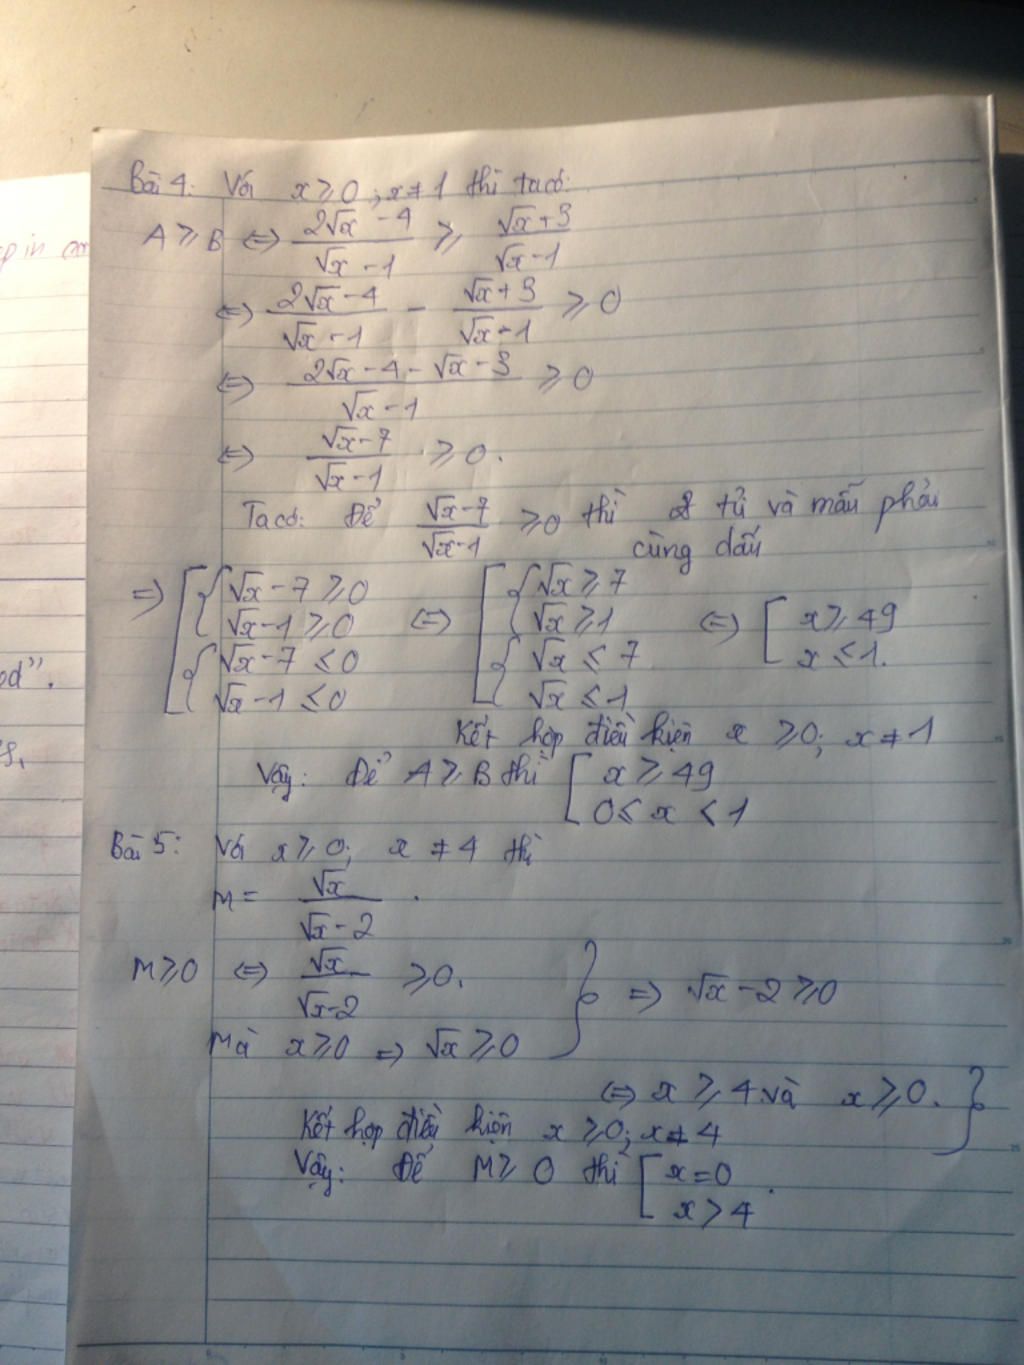 p in
od".
Bài 4: Với x ≥ 0 ; x ≠ 1 thì ta có:
A ≥ B ⇔ (2√x - 4)/(√x - 1) ≥ (√x + 3)/(√x - 1)
⇔ (2√x - 4)/(√x - 1) - (√x + 3)/(√x - 1) ≥ 0
⇔ (2√x - 4 - √x - 3)/(√x - 1) ≥ 0
⇔ (√x - 7)/(√x - 1) ≥ 0.
Ta có: Để (√x - 7)/(√x - 1) ≥ 0 thì tử và mẫu phải
cùng dấu
⇒ [ { √x - 7 ≥ 0 ⇔ [ { √x ≥ 7 ⇔ [ x ≥ 49
√x - 1 ≥ 0 √x ≥ 1 x ≤ 1.
{ √x - 7 ≤ 0 { √x ≤ 7
√x - 1 ≤ 0 √x ≤ 1
Kết hợp điều kiện x ≥ 0; x ≠ 1
Vậy: Để A ≥ B thì [ x ≥ 49
0 ≤ x < 1
Bài 5: Với x ≥ 0; x ≠ 4 thì
M = √x/(√x - 2).
M ≥ 0 ⇔ √x/(√x - 2) ≥ 0. } ⇒ √x - 2 ≥ 0
Mà x ≥ 0 ⇒ √x ≥ 0
⇔ x ≥ 4 và x ≥ 0. }
Kết hợp điều kiện x ≥ 0; x ≠ 4
Vậy: Để M ≥ 0 thì [ x = 0
x > 4.